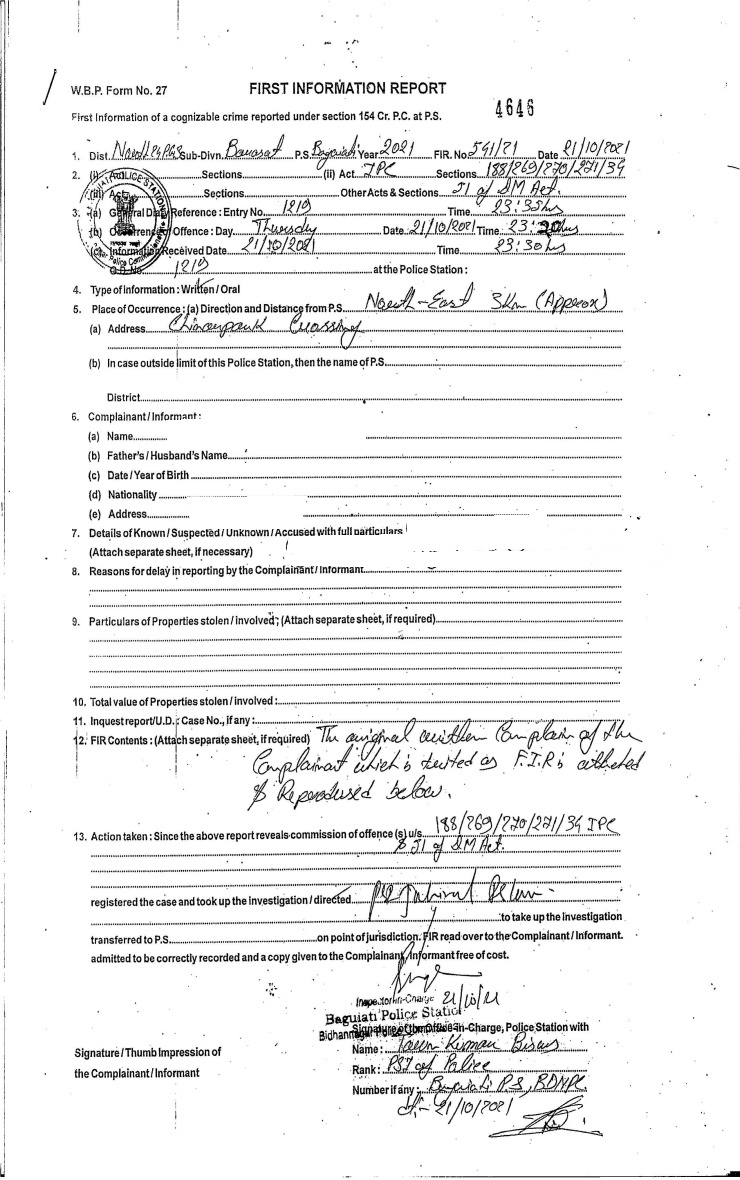 W.B.P. Form No. 27 FIRST INFORMATION REPORT
4646
First Information of a cognizable crime reported under section 154 Cr. P.C. at P.S.
1. Dist. Sub-Divn. Barasat P.S. Baguiati Year 2021 FIR. No. 591/21 Date 21/10/2021
2. (i) Act Sections (ii) Act IPC Sections 188/269/270/271/34
(iii) Act Sections Other Acts & Sections 51 of DM Act.
3. (a) General Diary Reference : Entry No. 1219 Time 23:35 hrs
(b) Occurrence Offence : Day Thursday Date 21/10/2021 Time 23:20 hrs
(c) Information Received Date 21/10/2021 Time 23:30 hrs
G.D. No. 1219 at the Police Station :
4. Type of information : Written / Oral
5. Place of Occurrence : (a) Direction and Distance from P.S. North-East 3km (Approx)
(a) Address Chinarpark Crossing
(b) In case outside limit of this Police Station, then the name of P.S.
District
6. Complainant / Informant :
(a) Name
(b) Father's / Husband's Name
(c) Date / Year of Birth
(d) Nationality
(e) Address
7. Details of Known / Suspected / Unknown / Accused with full particulars
(Attach separate sheet, if necessary)
8. Reasons for delay in reporting by the Complainant / Informant
9. Particulars of Properties stolen / involved : (Attach separate sheet, if required)
10. Total value of Properties stolen / involved :
11. Inquest report/U.D. : Case No., if any :
12. FIR Contents : (Attach separate sheet, if required) The original written Complain of the
Complainant which is treated as F.I.R is attached
& Reperodused below.
13. Action taken : Since the above report reveals commission of offence (s) u/s. 188/269/270/271/34 IPC
& 51 of DM Act.
registered the case and took up the investigation / directed
to take up the investigation
transferred to P.S. on point of jurisdiction. FIR read over to the Complainant / Informant.
admitted to be correctly recorded and a copy given to the Complainant / Informant free of cost.
21/10/21
Inspector-in-Charge
Baguiati Police Station
Signature of the Officer-in-Charge, Police Station with
Signature / Thumb Impression of
the Complainant / Informant
Name : Kumar Biswas
Rank : PSI of Police
Number if any : Baguiati P.S, BDNPC
21/10/2021